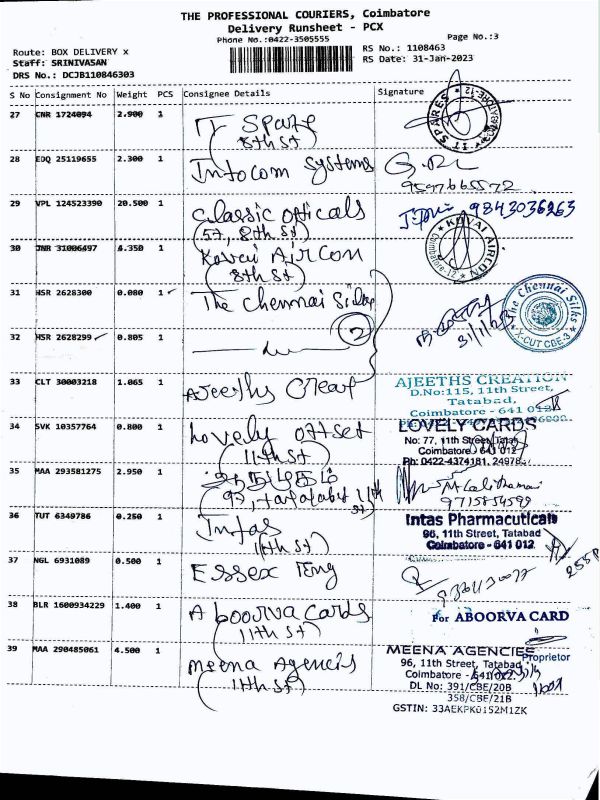 THE PROFESSIONAL COURIERS, Coimbatore
Delivery Runsheet - PCX
Phone No.:0422-3505555
Page No.:3
Route: BOX DELIVERY x
RS No.: 1108463
Staff: SRINIVASAN
RS Date: 31-Jan-2023
DRS No.: DCJB110846303
S No Consignment No Weight PCS Consignee Details Signature
27 CNR 1724094 2.900 1 IT Spare
(8th St)
IT SPARES COIMBATORE-12
28 EDQ 25119655 2.300 1 Infocom Systems
9597665572
29 VPL 124523390 20.500 1 Classic opticals 9843036263
(57, 8th St)
30 JNR 31006497 4.350 1 Kovai Air Con
(8th St)
KOVAI AIRCON Coimbatore-12
31 HSR 2628300 0.080 1 The Chennai Silks
31/1/23
The Chennai Silks X-CUT CBE-3
32 HSR 2628299 0.805 1
2
33 CLT 30003218 1.065 1 Ajeeths Creat
AJEETHS CREATION
D.No:115, 11th Street,
Tatabad,
Coimbatore - 641 012
34 SVK 10357764 0.800 1 Lovely offset
(11th St)
LOVELY CARDS
No: 77, 11th Street, Tatabad
Coimbatore - 641 012
Ph: 0422-4374181,
35 MAA 293581275 2.950 1
(93, Tatabad 11th
St)
9715854599
36 TUT 6349786 0.250 1 Intas
(11th St)
Intas Pharmacuticals
96, 11th Street, Tatabad
Coimbatore - 641 012
37 NGL 6931089 0.500 1 Essex Eng
38 BLR 1600934229 1.400 1 Aboorva Cards
(11th St)
For ABOORVA CARD
Proprietor
39 MAA 290485061 4.500 1 Meena Agencis
(11th St)
MEENA AGENCIES
96, 11th Street, Tatabad
Coimbatore - 641012.
DL No: 391/CBE/20B
358/CBE/21B
GSTIN: 33AEKPK0152M1ZK